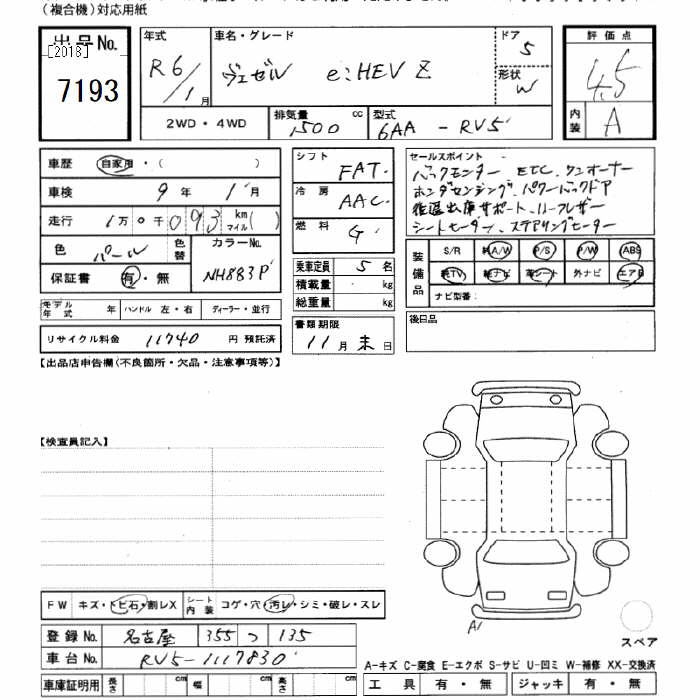 （複合機）対応用紙
出品No.
[2018]
7193
年式
R6/1月
車名・グレード
ヴェゼル e:HEV Z
ドア
5
形状
W
評価点
4.5
内装
A
2WD・4WD
排気量
1500 cc
型式
6AA - RV5
車歴 自家用・（ ）
車検 9年 1月
走行 1万0千093 km マイル( )
色 パール
色替
カラーNo.
NH883P
保証書 有・無
モデル年式 年
ハンドル 左・右
ディーラー・並行
リサイクル料金 11740 円 預託済
シフト FAT
冷房 AAC
燃料 G
乗車定員 5 名
積載量 kg
総重量 kg
書類期限
11月末日
セールスポイント
バックモニター ETC ワンオーナー
ホンダセンシング、パワーバックドア
後退出庫サポート、ハーフレザー
シートヒーター、ステアリングヒーター
装備品
S/R 純A/W P/S P/W ABS
純TV 純ナビ 革シート 外ナビ エアB
ナビ型番：
後日品
【出品店申告欄（不良箇所・欠品・注意事項等）】
【検査員記入】
FW キズ・トビ石・割レX
シート内装 コゲ・穴・汚レ・シミ・破レ・スレ
登録No. 名古屋 355 つ 135
車台No. RV5-1117830
車庫証明用 長さ cm 幅 cm 高さ cm
A1
スペア
A-キズ C-腐食 E-エクボ S-サビ U-凹ミ W-補修 XX-交換済
工具 有・無 ジャッキ 有・無